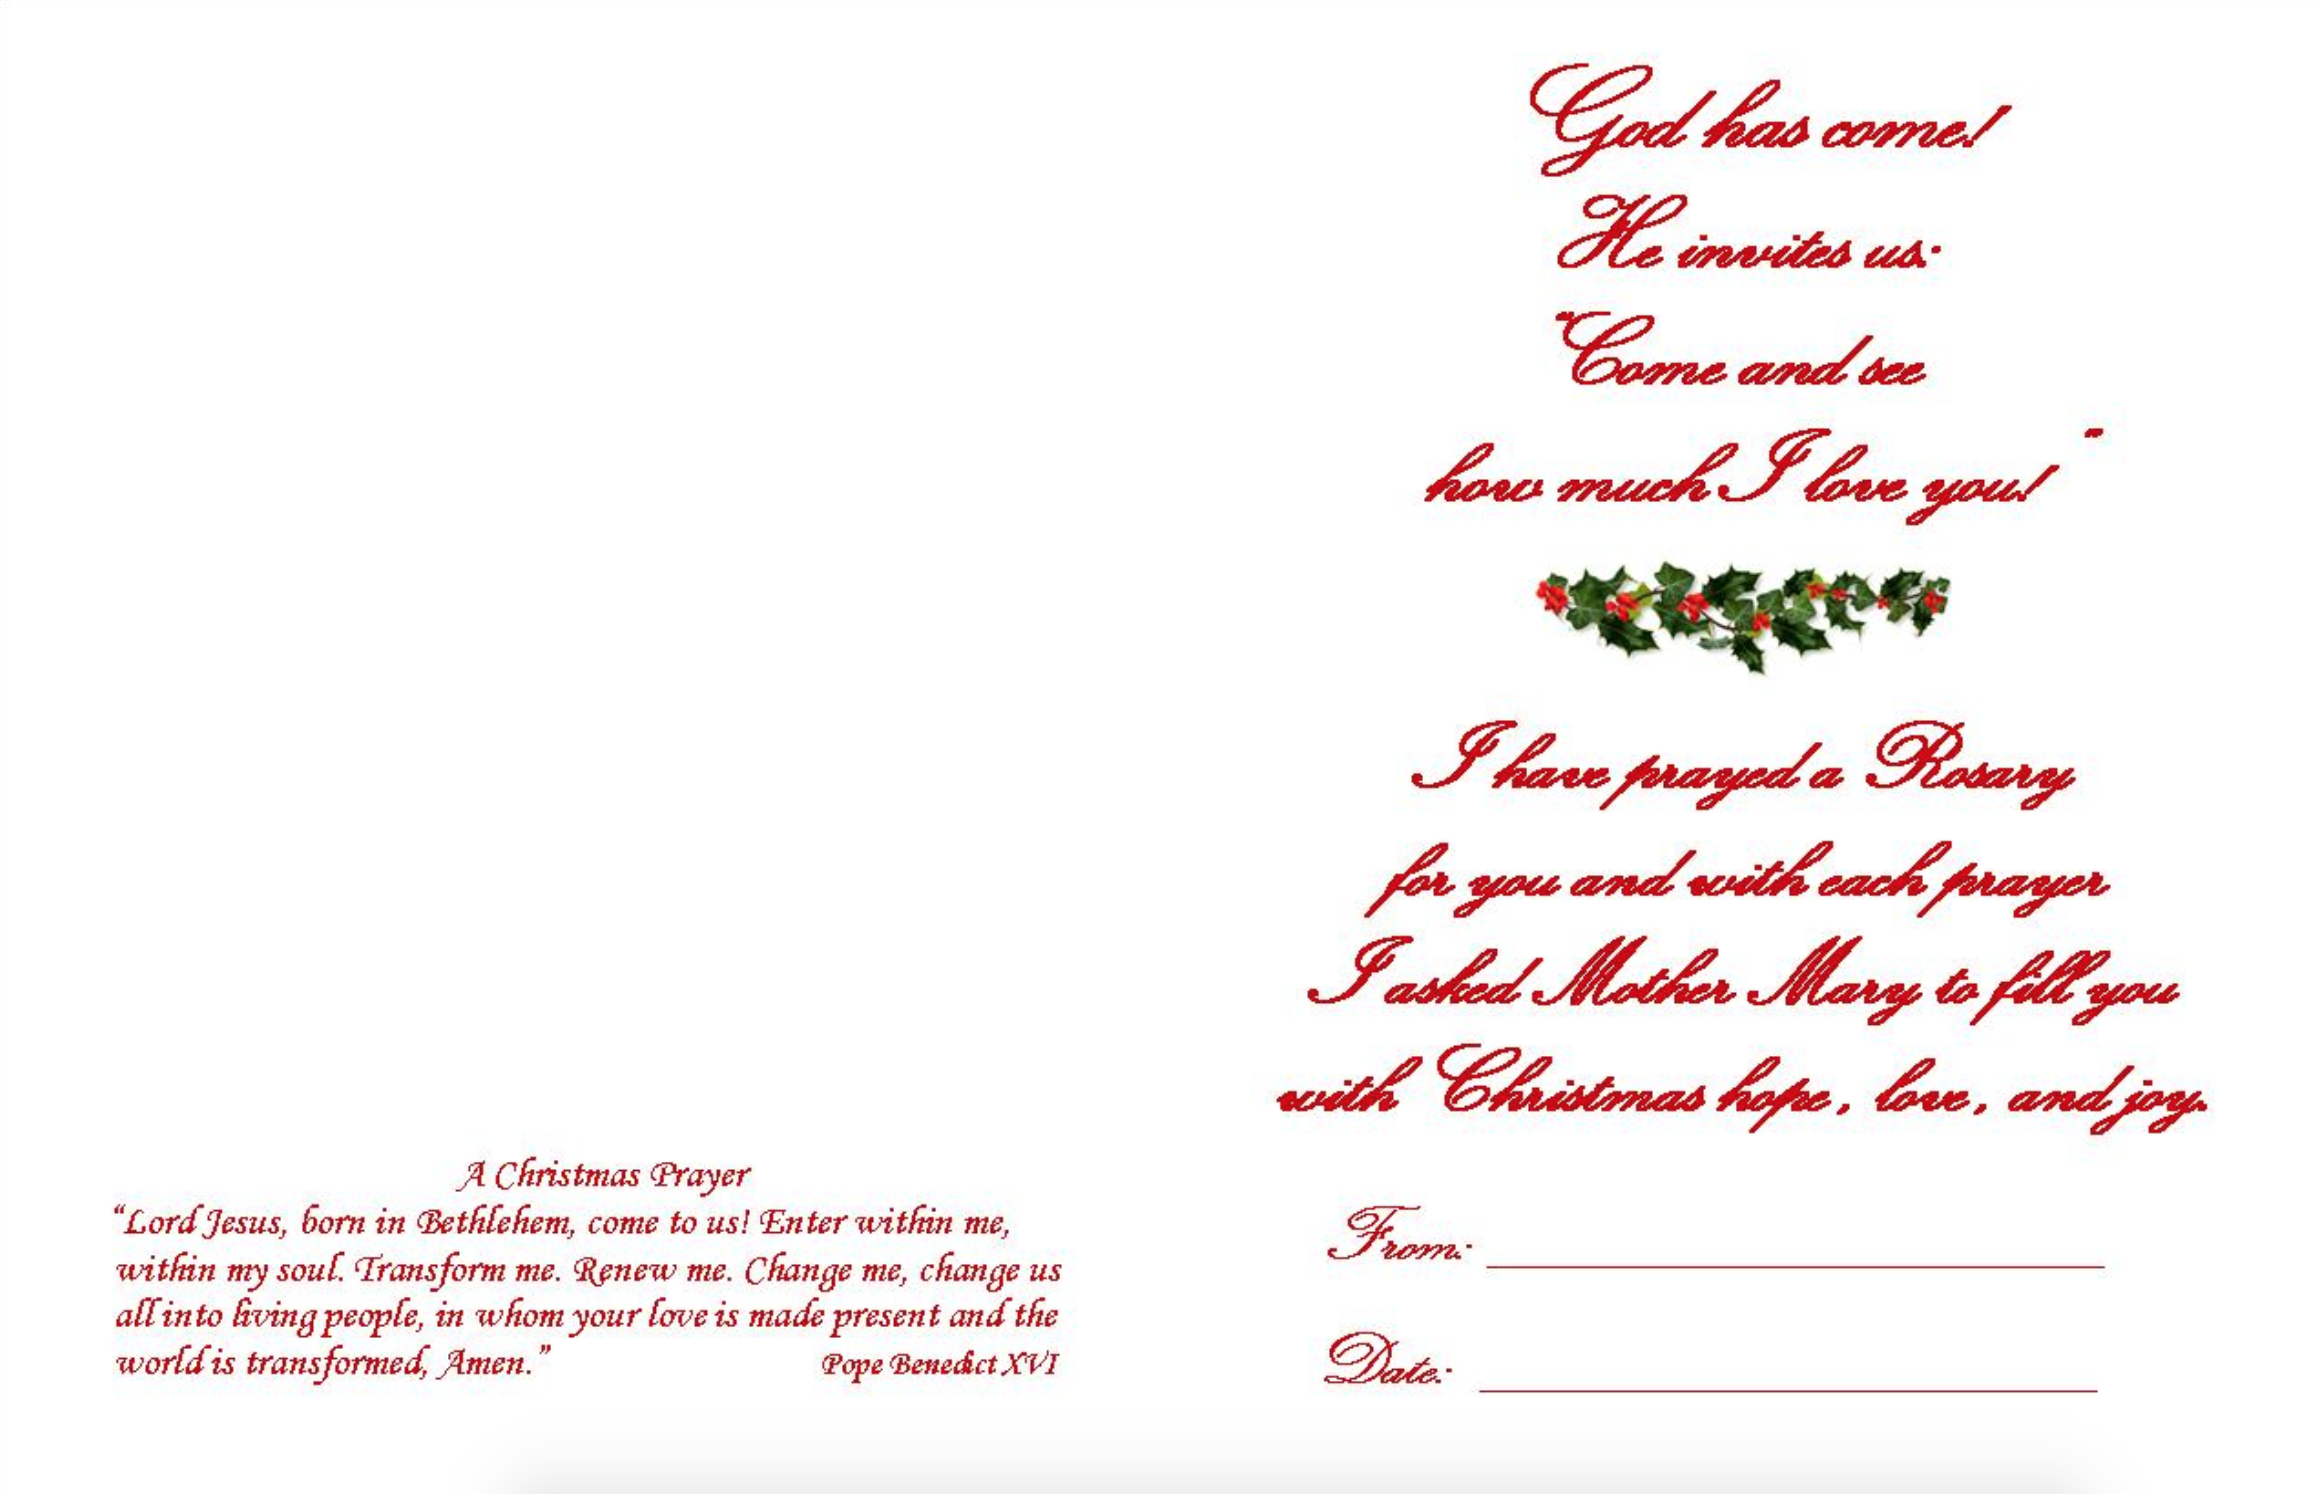 A Christmas Prayer
“Lord Jesus, born in Bethlehem, come to us! Enter within me,
within my soul. Transform me. Renew me. Change me, change us
all into living people, in whom your love is made present and the
world is transformed, Amen.” Pope Benedict XVI
God has come!
He invites us:
“Come and see
how much I love you!”
I have prayed a Rosary
for you and with each prayer
I asked Mother Mary to fill you
with Christmas hope, love, and joy.
From:
Date: